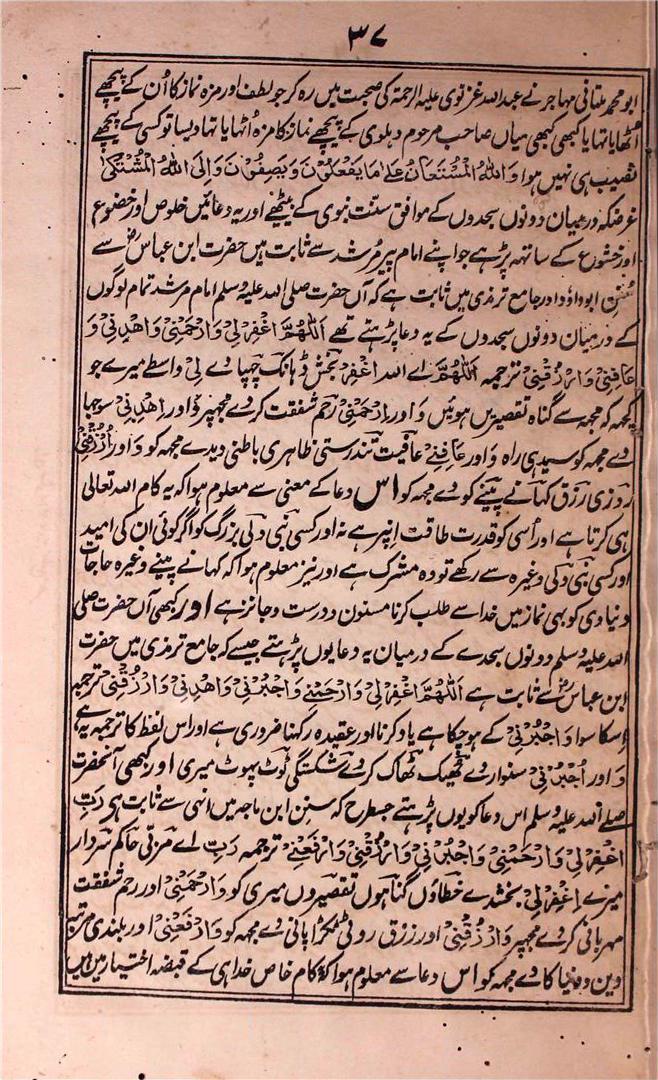 ۳۷
ابو محمد ملتانی مہاجر نے عبداللہ غزنوی علیہ الرحمۃ کی صحبت میں رہ کر جو لطف اور مزہ نماز کا اُن کے پیچھے
اُٹھایا تہا یا کبھی کبھی میاں صاحب مرحوم دہلوی کے پیچھے نماز کا مزہ اُٹھایا تہا ویسا تو کسی کے پیچھے
نصیب ہی نہیں ہوا وَاللهُ الْمُسْتَعَانُ عَلٰى مَا يَفْعَلُوْنَ وَيَصِفُوْنَ وَاِلَى اللهِ الْمُشْتَكٰى
غرضکہ درمیان دونوں سجدوں کے موافق سنت نبوی کے بیٹھے اور یہ دعائیں خلوص اور خضوع
اور خشوع کے ساتھہ پڑہے جو اپنے امام پیر مُرشد سے ثابت ہیں حضرت ابن عباسؓ سے
سُنن ابو داؤد اور جامع ترمذی میں ثابت ہے کہ آں حضرت صلی اللہ علیہ وسلم امام مرشد تمام لوگوں
کے درمیان دونوں سجدوں کے یہ دعا پڑہتے تھے اَللّٰهُمَّ اغْفِرْ لِيْ وَارْحَمْنِيْ وَاهْدِنِيْ وَ
عَافِنِيْ وَارْزُقْنِيْ ترجمہ اَللّٰهُمَّ اے اللہ اغْفِرْ بخش ڈہانک چہپا دے لِيْ واسطے میرے جو
کچہہ کہ مجہہ سے گناہ تقصیریں ہوئیں وَ اور ارْحَمْنِيْ رحم شفقت کر دے مجہپر وَ اور اهْدِنِيْ سوجہا
دے مجہہ کو سیدہی راہ وَ اور عَافِنِيْ عافیت تندرستی ظاہری باطنی دیدے مجہہ کو وَ اور ارْزُقْنِيْ
روزی رزق کہانے پینے کو دے مجہہ کو اس دعا کے معنی سے معلوم ہوا کہ یہ کام اللہ تعالی
ہی کرتا ہے اور اُسی کو قدرت طاقت اسپر ہے نہ اور کسی نبی ولی بزرگ کو اگر کوئی ان کی امید
اور کسی نبی ولی وغیرہ سے رکھے تو وہ مشرک ہے اور نیز معلوم ہوا کہ کہانے پینے وغیرہ حاجات
دنیاوی کو بہی نماز میں خدا سے طلب کرنا مسنون و درست و جائز ہے اور کبھی آں حضرت صلی
اللہ علیہ وسلم دونوں سجدے کے درمیان یہ دعا یوں پڑہتے جیسے کہ جامع ترمذی میں حضرت
ابن عباسؓ سے ثابت ہے اَللّٰهُمَّ اغْفِرْ لِيْ وَارْحَمْنِيْ وَاجْبُرْنِيْ وَاهْدِنِيْ وَارْزُقْنِيْ ترجمہ
اسکا سوا وَاجْبُرْنِيْ کے ہو چکا ہے یاد کرنا اور عقیدہ رکہنا ضروری ہے اور اس لفظ کا ترجمہ یہ ہے
وَ اور اُجْبُرْنِيْ سنوار دے ٹھیک ٹھاک کر دے شکستگی ٹوٹ پہوٹ میری اور کبھی آنحضرت
صلے اللہ علیہ وسلم اس دعا کو یوں پڑہتے جسطرح کہ سنن ابن ماجہ میں انہی سے ثابت ہی رَبِّ
اغْفِرْ لِيْ وَارْحَمْنِيْ وَاجْبُرْنِيْ وَارْزُقْنِيْ وَارْفَعْنِيْ ترجمہ رَبِّ اے مربّی حاکم سردار
میرے اغْفِرْ لِيْ بخشدے خطاؤں گناہوں تقصیروں میری کو وَارْحَمْنِيْ اور رحم شفقت
مہربانی کر دے مجہپر وَارْزُقْنِيْ اور رزق روٹی ٹکڑا پانی دے مجہہ کو وَارْفَعْنِيْ اور بلندی مرتبہ
دین و دنیا کا دے مجہہ کو اس دعا سے معلوم ہوا کہ کام خاص خدا ہی کے قبضہ اختیار میں ہیں